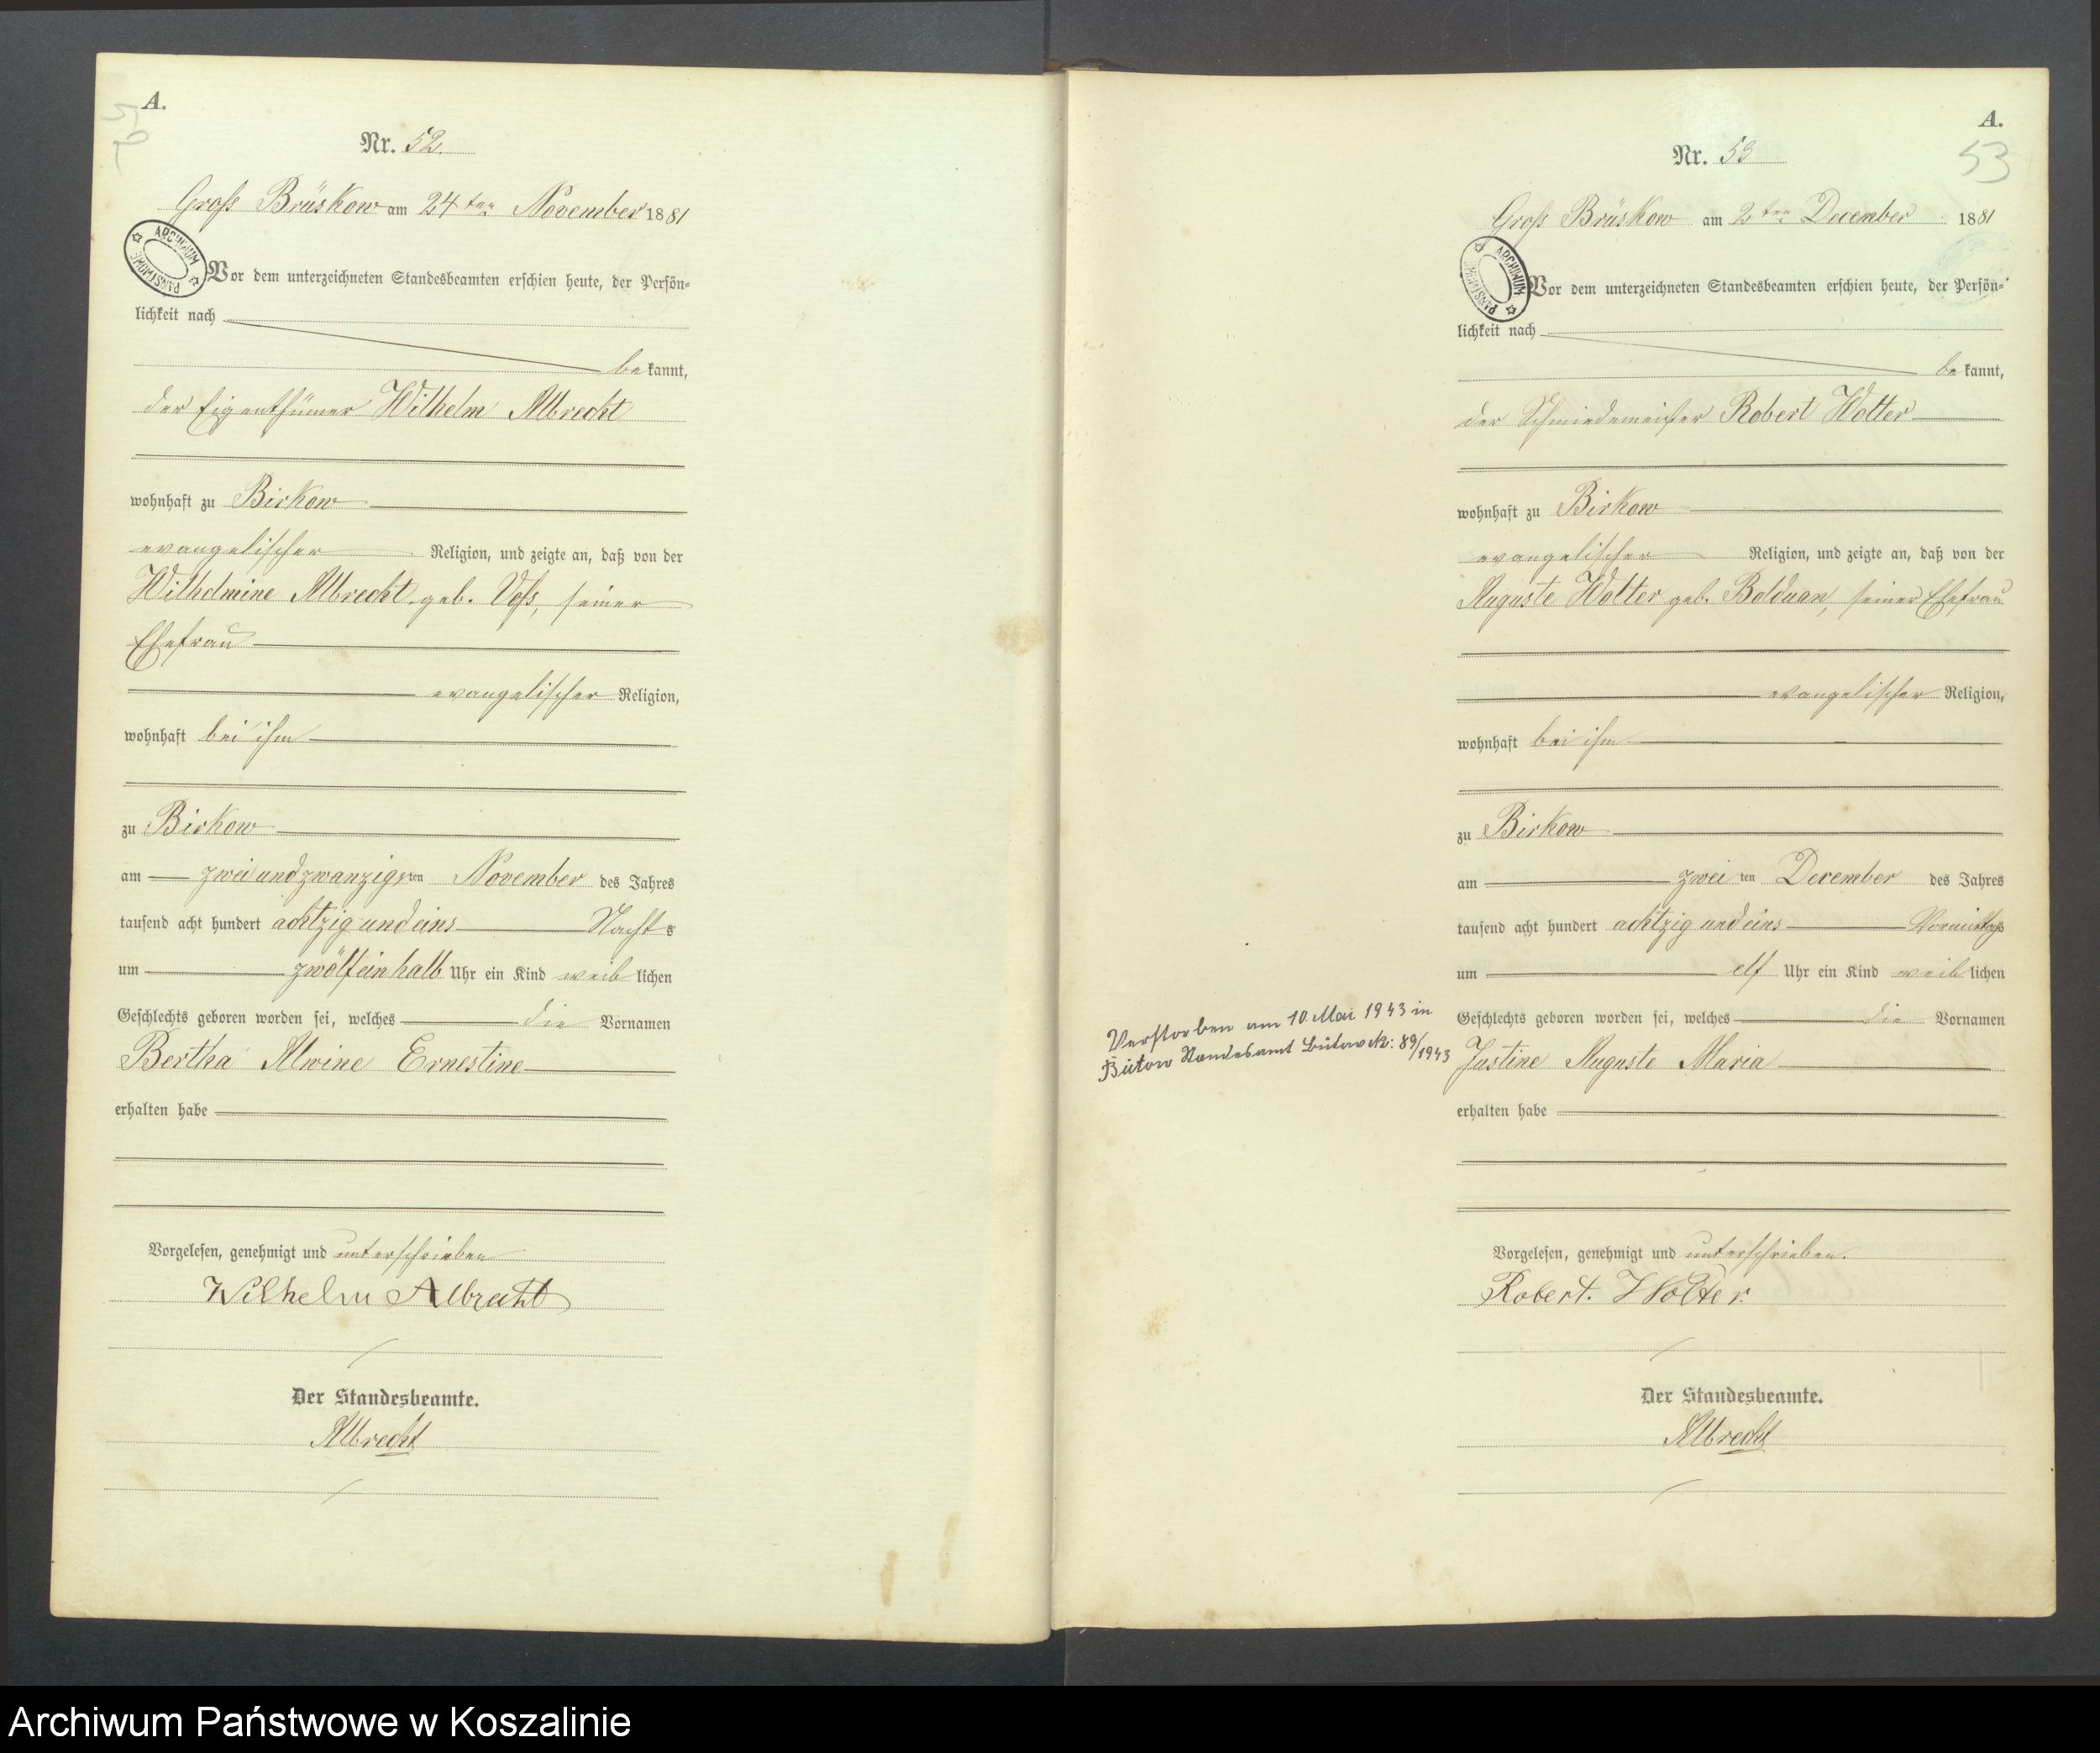 A.
Nr. 52.
Groß Brüskow am 24ten November 1881
ARCHIWUM PAŃSTWOWE
Vor dem unterzeichneten Standesbeamten erschien heute, der Persön-
lichkeit nach
bekannt,
der Eigenthümer Wilhelm Albrecht
wohnhaft zu Birkow
evangelischer Religion, und zeigte an, daß von der
Wilhelmine Albrecht geb. Voß, seiner
Ehefrau
evangelischer Religion,
wohnhaft bei ihm
zu Birkow
am zweiundzwanzigsten November des Jahres
tausend acht hundert achtzig und eins Nachts
um zwölfeinhalb Uhr ein Kind weiblichen
Geschlechts geboren worden sei, welches die Vornamen
Bertha Alwine Ernestine
erhalten habe
Vorgelesen, genehmigt und unterschrieben
Wilhelm Albrecht
Der Standesbeamte.
Albrecht
A.
53
Nr. 53
Groß Brüskow am 2ten December 1881
ARCHIWUM PAŃSTWOWE
Vor dem unterzeichneten Standesbeamten erschien heute, der Persön-
lichkeit nach
bekannt,
der Schmiedemeister Robert Wolter
wohnhaft zu Birkow
evangelischer Religion, und zeigte an, daß von der
Auguste Wolter geb. Bolduan, seiner Ehefrau
evangelischer Religion,
wohnhaft bei ihm
zu Birkow
am zweiten December des Jahres
tausend acht hundert achtzig und eins Vormittags
um elf Uhr ein Kind weiblichen
Geschlechts geboren worden sei, welches die Vornamen
Justine Auguste Maria
erhalten habe
Verstorben am 10. Mai 1943 in
Bütow Standesamt Bütow Nr: 89/1943
Vorgelesen, genehmigt und unterschrieben.
Robert. Wolter.
Der Standesbeamte.
Albrecht
Archiwum Państwowe w Koszalinie